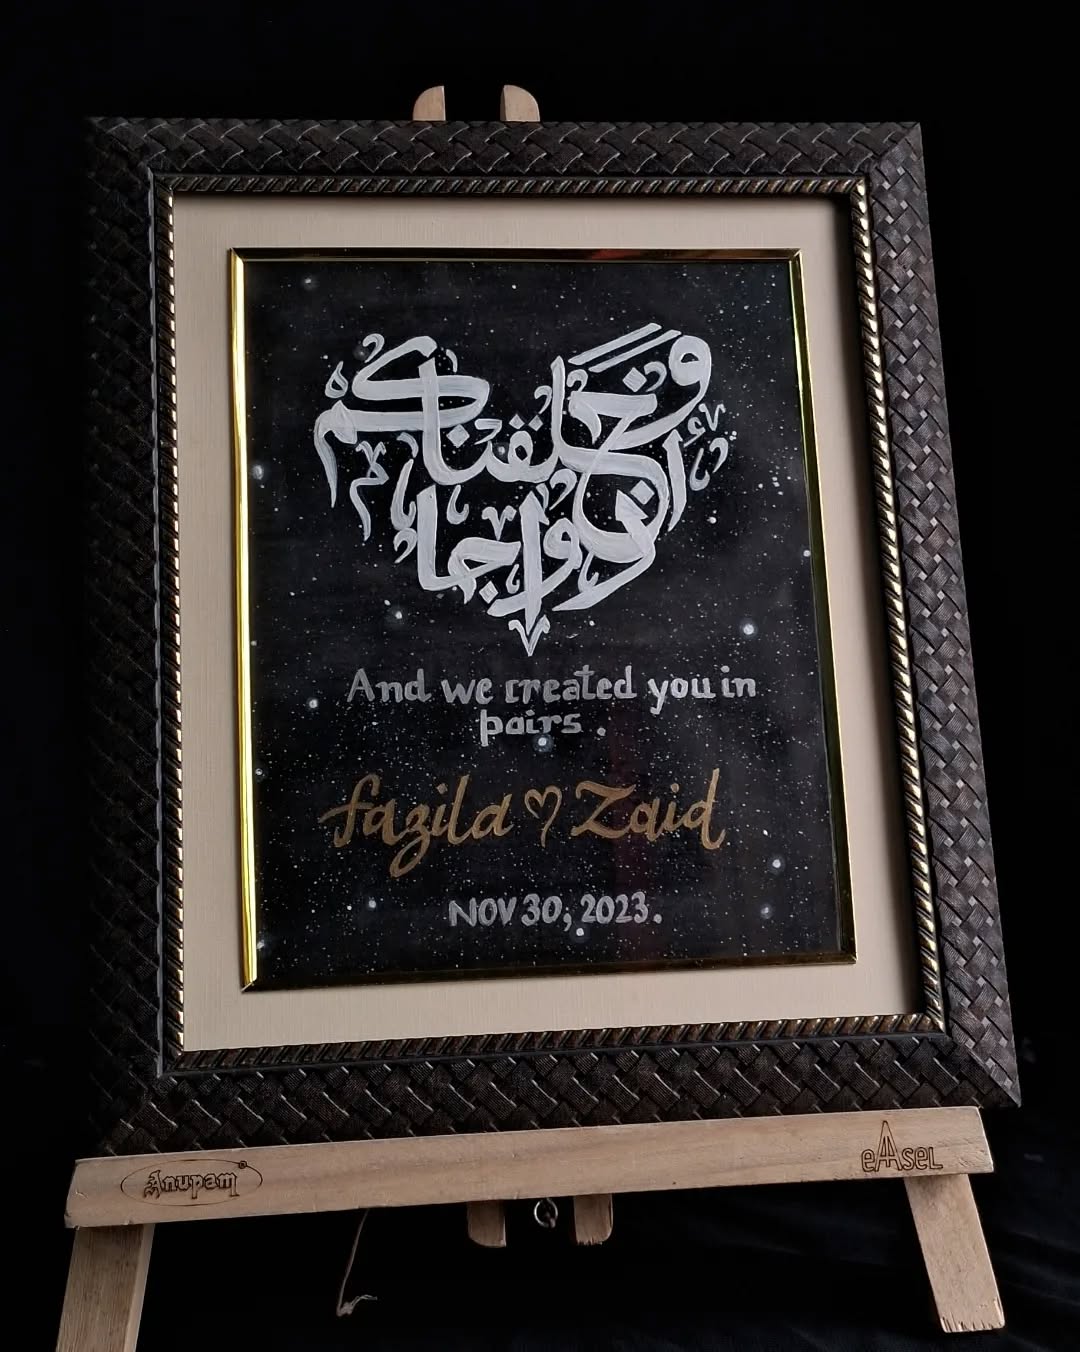 وخلقناكم
أزواجا
And we created you in
pairs .
fazila ♡ Zaid
NOV 30, 2023.
Anupam
eAsel